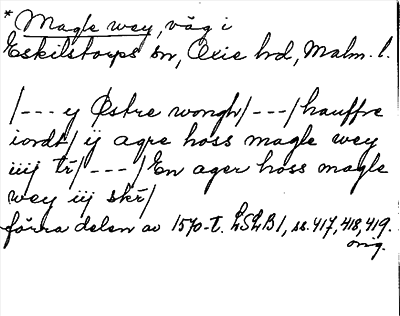 * Magle wey, väg i
Eskilstorps sn, Oxie hd, Malm. l.
/--- y Østre wongh/---/hauffre
iordt/ ÿ agre hoss magle wey
iiij tr̃/---/En ager hoss magle
wey iij skr̃/
förra delen av 1570-t. LSLB1, ss. 417, 418, 419.
orig.